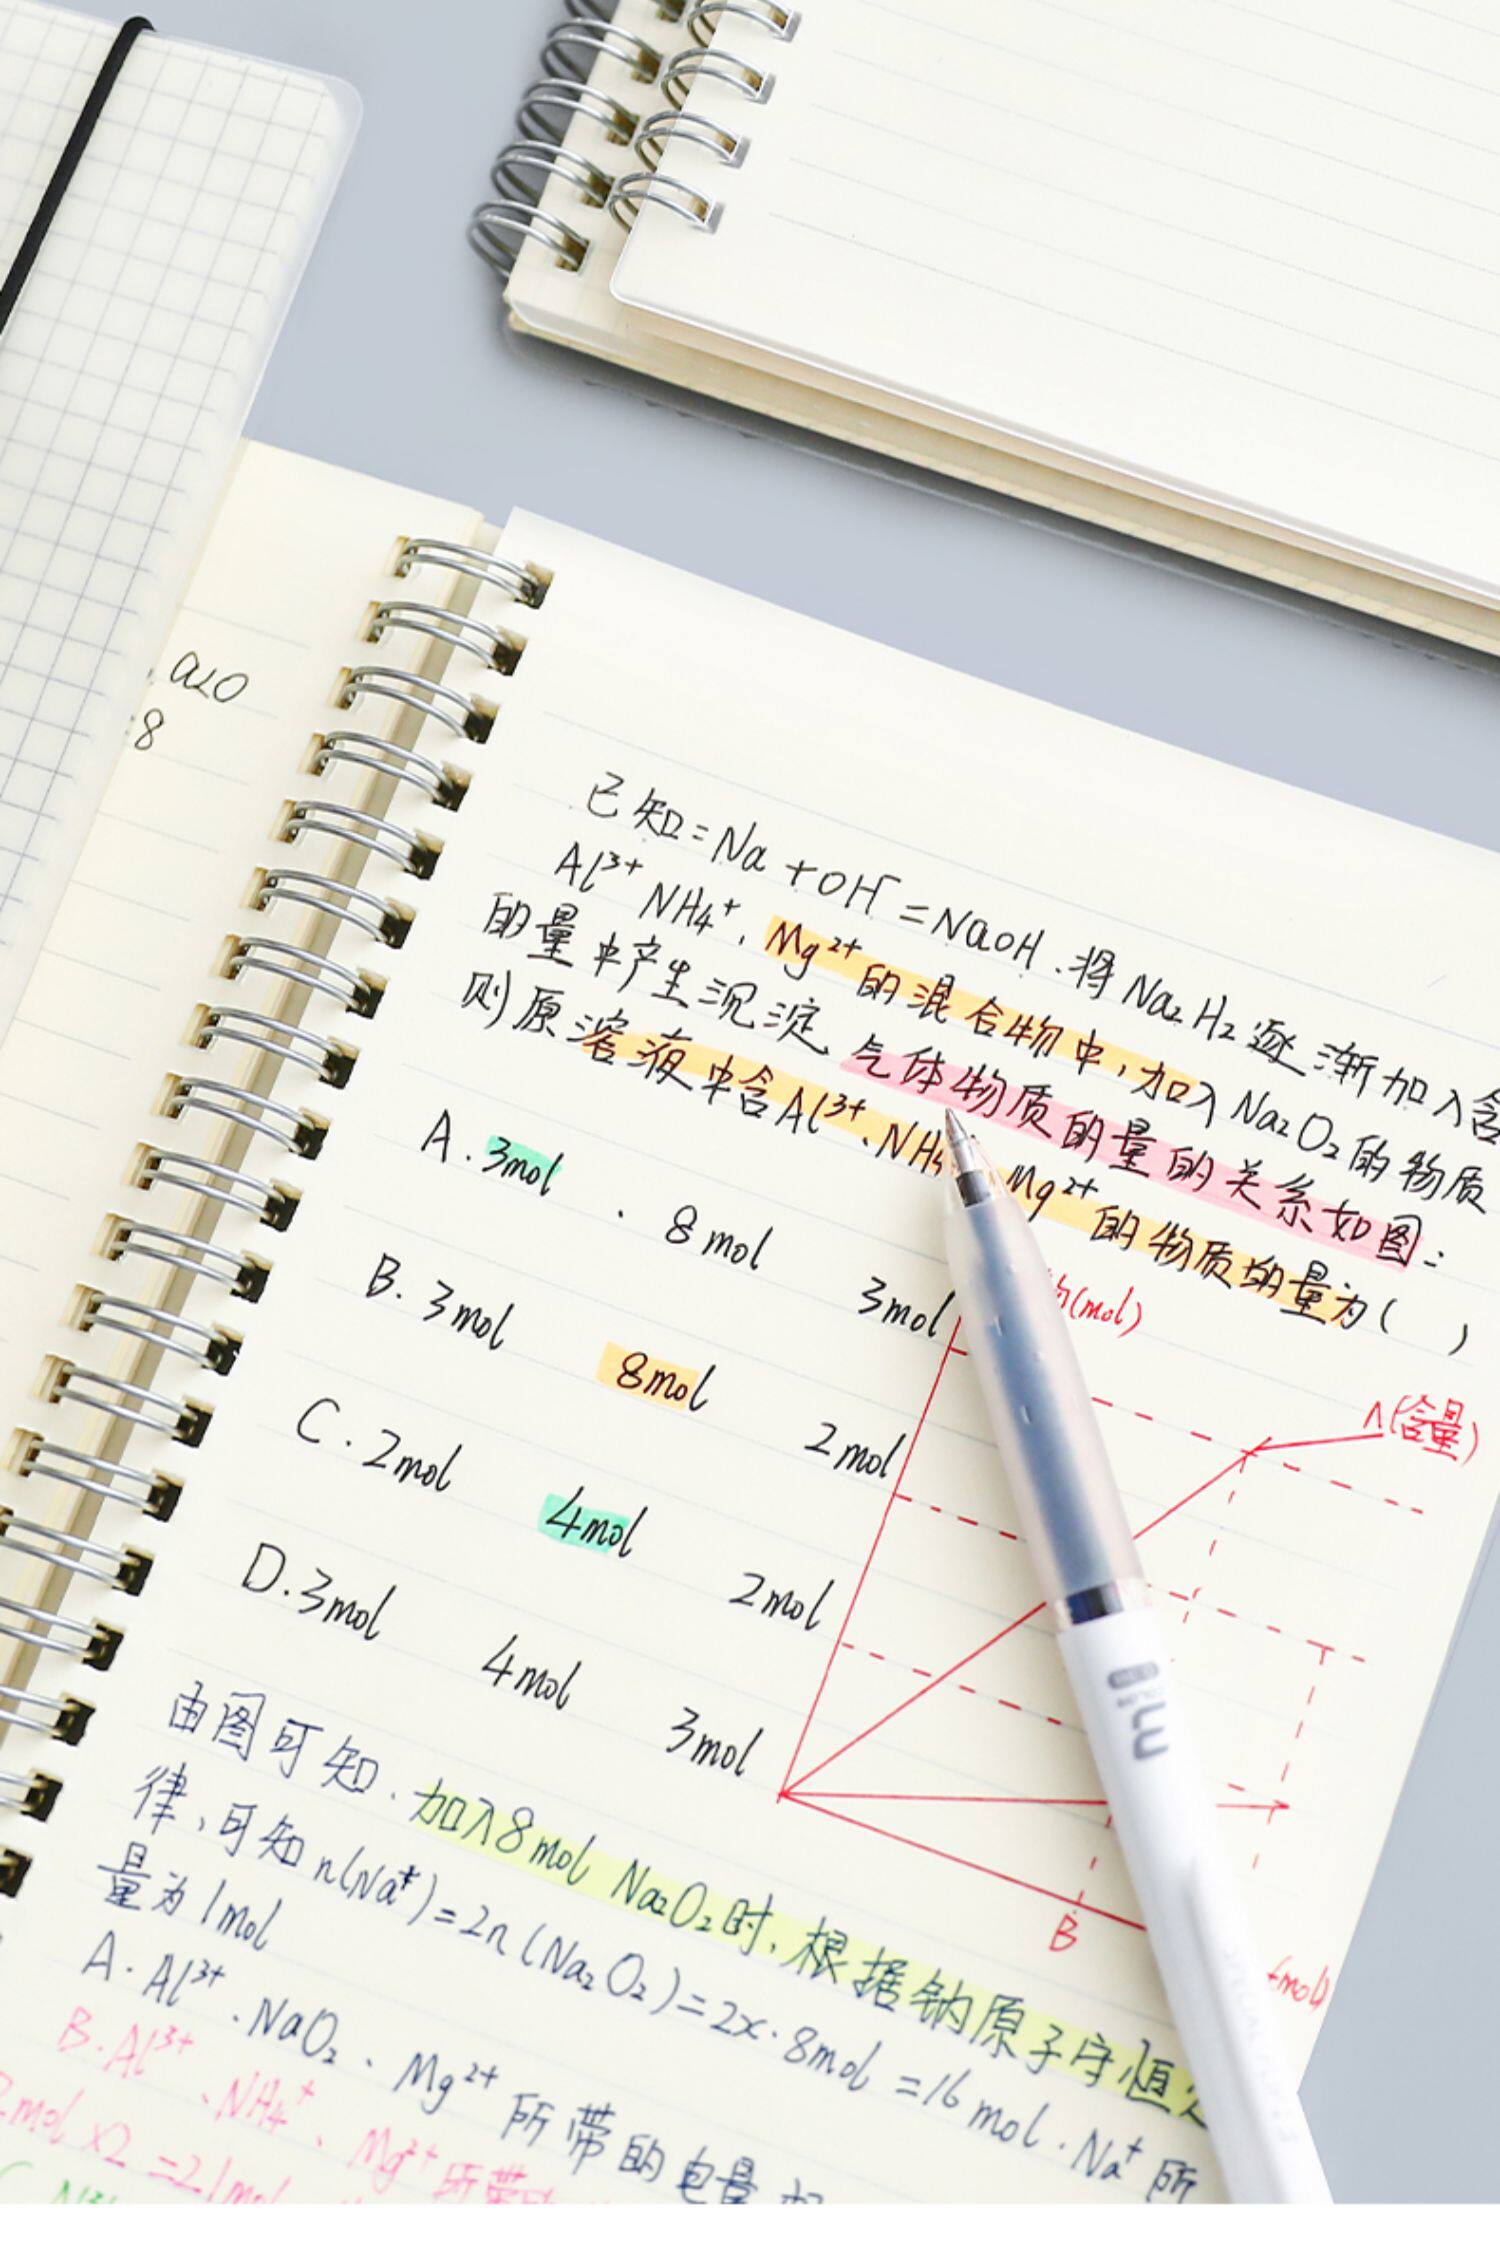 a20
8
已知=Na+OH⁻=NaOH.将Na₂H₂逐渐加入含
Al³⁺ NH₄⁺、Mg²⁺的混合物中,加入Na₂O₂的物质
的量中产生沉淀 气体物质的量的关系如图:
则原溶液中含Al³⁺、NH₄ Mg²⁺的物质的量为( )
A.3mol . 8mol 3mol
B.3mol 8mol 2mol
C.2mol 4mol 2mol
D.3mol 4mol 3mol
(mol)
(含量)
B
(mol)
由图可知.加入8mol Na₂O₂时,根据钠原子守恒定
律,可知n(Na⁺)=2n(Na₂O₂)=2x·8mol=16mol.Na⁺所
量为1mol
A.Al³⁺.NaO₂、Mg²⁺所带的电量
B.Al³⁺、NH₄⁺、Mg²⁺所带
2mol x2=21mol